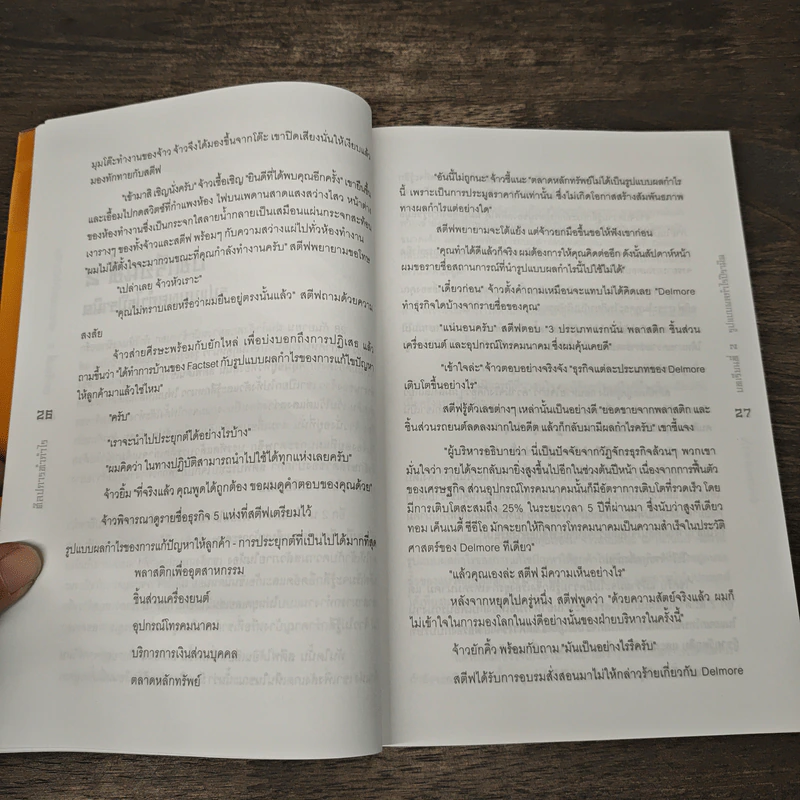 มุมโต๊ะทำงานของจ้าว จ้าวจึงได้มองขึ้นจากโต๊ะ เขาปิดเสียงนั่นให้เงียบแล้ว
มองทักทายกับสตีฟ
"เข้ามาสิ เชิญนั่งครับ" จ้าวเชื้อเชิญ "ยินดีที่ได้พบคุณอีกครั้ง" เขายืนขึ้น
และเอื้อมไปกดสวิตช์ที่กำแพงห้อง ไฟบนเพดานสาดแสงสว่างไสว หน้าต่าง
ของห้องทำงานซึ่งเป็นกระจกใสลายน้ำกลายเป็นเสมือนแผ่นกระจกสะท้อน
เงารางๆ ของทั้งจ้าวและสตีฟ พร้อมๆ กับความสว่างแผ่ไปทั่วห้องทำงาน
"ผมไม่ได้ตั้งใจจะมากวนขณะที่คุณกำลังทำงานครับ" สตีฟพยายามขอโทษ
"เปล่าเลย จ้าวหัวเราะ"
"คุณไม่ทราบเลยหรือว่าผมยืนอยู่ตรงนั้นแล้ว" สตีฟถามด้วยความ
สงสัย
จ้าวส่ายศีรษะพร้อมกับยักไหล่ เพื่อบ่งบอกถึงการปฏิเสธ แล้ว
ถามขึ้นว่า "ได้ทำการบ้านของ Factset กับรูปแบบผลกำไรของการแก้ไขปัญหา
ให้ลูกค้ามาแล้วใช่ไหม"
"ครับ"
"เราจะนำไปประยุกต์ได้อย่างไรบ้าง"
"ผมคิดว่า ในทางปฏิบัติสามารถนำไปใช้ได้ทุกแห่งเลยครับ"
จ้าวยิ้ม "ที่จริงแล้ว คุณพูดได้ถูกต้อง ขอผมดูคำตอบของคุณด้วย"
จ้าวพิจารณาดูรายชื่อธุรกิจ 5 แห่งที่สตีฟเตรียมไว้
รูปแบบผลกำไรของการแก้ปัญหาให้ลูกค้า - การประยุกต์ที่เป็นไปได้มากที่สุด
พลาสติกเพื่ออุตสาหกรรม
ชิ้นส่วนเครื่องยนต์
อุปกรณ์โทรคมนาคม
บริการการเงินส่วนบุคคล
ตลาดหลักทรัพย์
26
ศิลปการทำกำไร
"อันนี้ไม่ถูกนะ" จ้าวชี้แนะ "ตลาดหลักทรัพย์ไม่ได้เป็นรูปแบบผลกำไร
นี้ เพราะเป็นการประมูลราคากันเท่านั้น ซึ่งไม่เกิดโอกาสสร้างสัมพันธภาพ
ทางผลกำไรแต่อย่างใด"
สตีฟพยายามจะโต้แย้ง แต่จ้าวยกมือขึ้นขอให้ฟังเขาก่อน
"คุณทำได้ดีแล้วก็จริง ผมต้องการให้คุณคิดต่ออีก ดังนั้นสัปดาห์หน้า
ผมขอรายชื่อสถานการณ์ที่นำรูปแบบผลกำไรนี้ไปใช้ไม่ได้"
"เดี๋ยวก่อน" จ้าวตั้งคำถามเหมือนจะแทบไม่ได้คิดเลย "Delmore
ทำธุรกิจใดบ้างจากรายชื่อของคุณ"
"แน่นอนครับ" สตีฟตอบ "3 ประเภทแรกนั่น พลาสติก ชิ้นส่วน
เครื่องยนต์ และอุปกรณ์โทรคมนาคม ซึ่งผมคุ้นเคยดี"
"เข้าใจล่ะ" จ้าวตอบอย่างจริงจัง "ธุรกิจแต่ละประเภทของ Delmore
เติบโตขึ้นอย่างไร"
สตีฟรู้ตัวเลขต่างๆ เหล่านั้นเป็นอย่างดี "ยอดขายจากพลาสติก และ
ชิ้นส่วนรถยนต์ลดลงมากในอดีต แล้วก็กลับมามีผลกำไรครับ" เขาชี้แจง
"ผู้บริหารอธิบายว่า นี่เป็นปัจจัยจากวัฏจักรธุรกิจล้วนๆ พวกเขา
มั่นใจว่า รายได้จะกลับมายิ่งสูงขึ้นไปอีกในช่วงต้นปีหน้า เนื่องจากการฟื้นตัว
ของเศรษฐกิจ ส่วนอุปกรณ์โทรคมนาคมนั้นก็มีอัตราการเติบโตที่รวดเร็ว โดย
มีการเติบโตสะสมถึง 25% ในระยะเวลา 5 ปีที่ผ่านมา ซึ่งนับว่าสูงทีเดียว
ทอม เค้นเนดี้ ซีอีโอ มักจะยกให้กิจการโทรคมนาคมเป็นความสำเร็จในประวัติ
ศาสตร์ของ Delmore ทีเดียว"
"แล้วคุณเองล่ะ สตีฟ มีความเห็นอย่างไร"
หลังจากหยุดไปครู่หนึ่ง สตีฟพูดว่า "ด้วยความสัตย์จริงแล้ว ผมก็
ไม่เข้าใจในการมองโลกในแง่ดีอย่างนั้นของฝ่ายบริหารในครั้งนี้"
จ้าวยักคิ้ว พร้อมกับถาม "มันเป็นอย่างไรรึครับ"
สตีฟได้รับการอบรมสั่งสอนมาไม่ให้กล่าวร้ายเกี่ยวกับ Delmore
บทเรียนที่ 2 รูปแบบผลกำไรปิรามิด
27